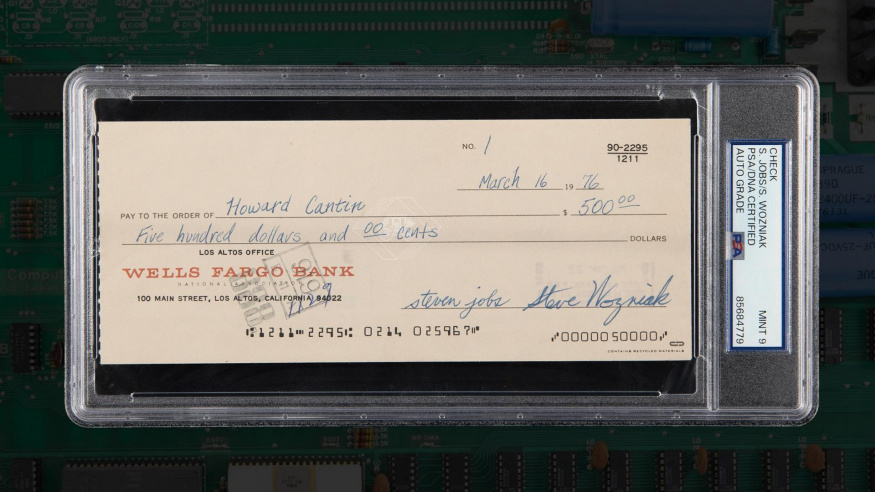 NO. 1
90-2295
1211
March 16 19 76
PAY TO THE ORDER OF Howard Cantin $ 500 00
Five hundred dollars and 00 cents DOLLARS
LOS ALTOS OFFICE
WELLS FARGO BANK
NATIONAL ASSOCIATION
100 MAIN STREET, LOS ALTOS, CALIFORNIA 94022
steven jobs Steve Wozniak
⑆1211⑉2295⑆ 0214 025967⑈ ⑇0000050000⑇
CONTAINS RECYCLED MATERIALS
CHECK
S. JOBS/S. WOZNIAK
PSA/DNA CERTIFIED
AUTO GRADE MINT 9
PSA 85684779
SPRAGUE